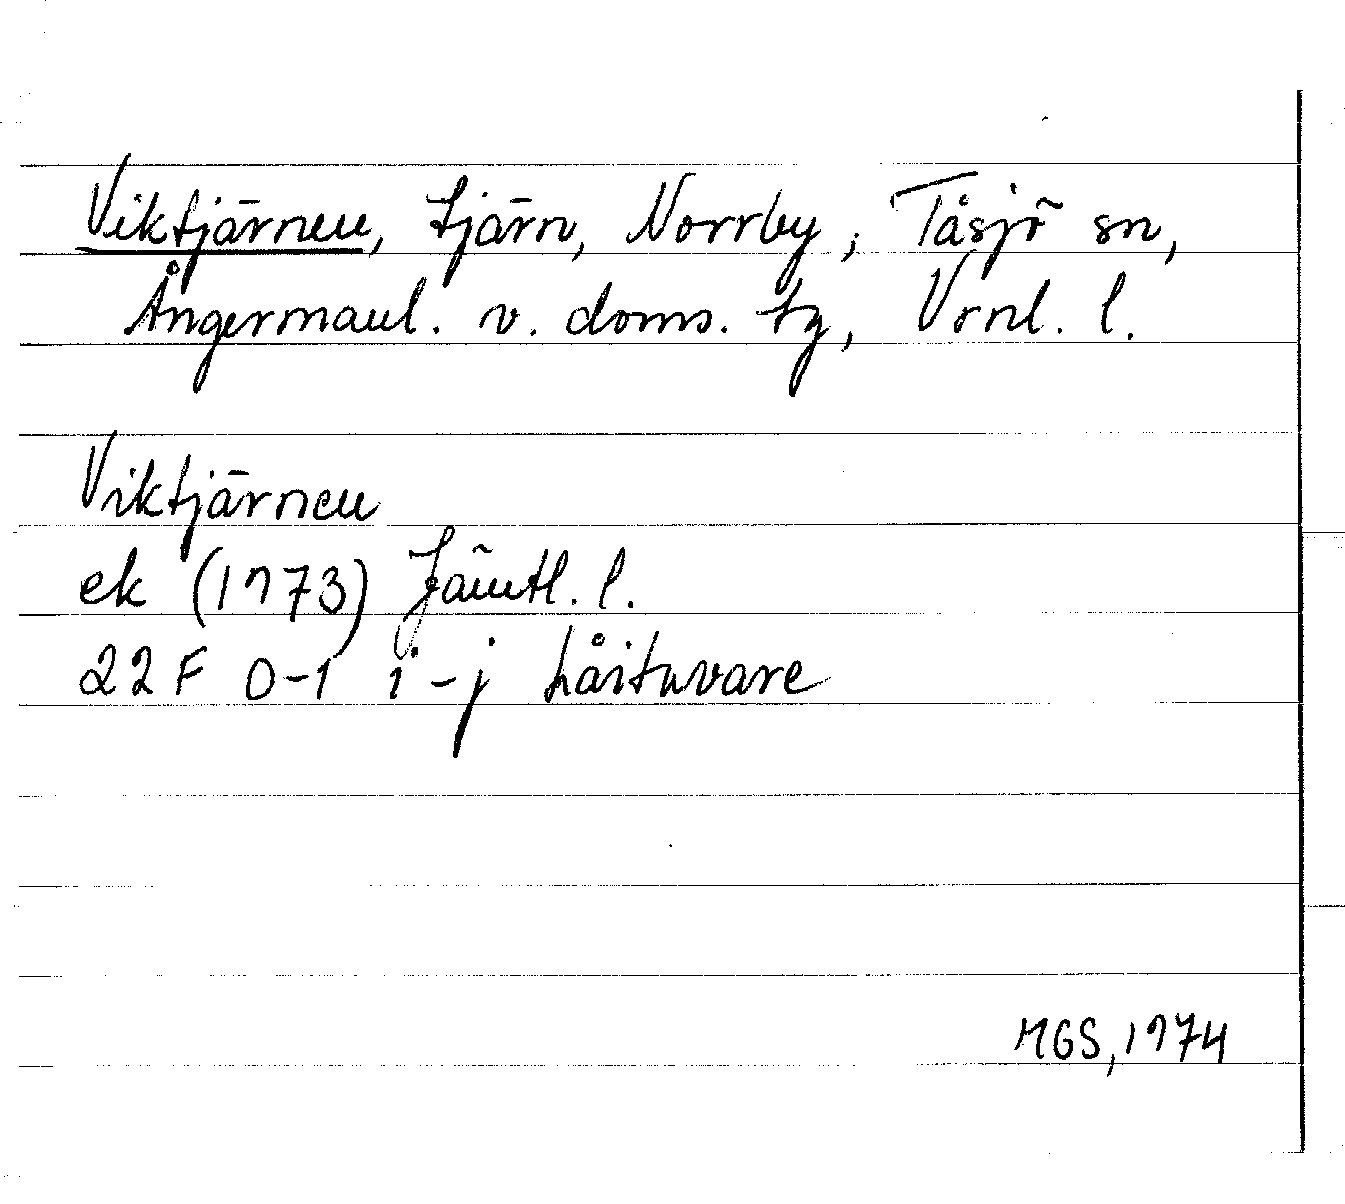 Viktjärnen, tjärn, Norrby, Tåsjö sn,
Ångermanl. v. doms. tg, Vrnl. l.
Viktjärnen
ek (1973) Jämtl. l.
22F 0-1 i-j Låituvare
MGS, 1974